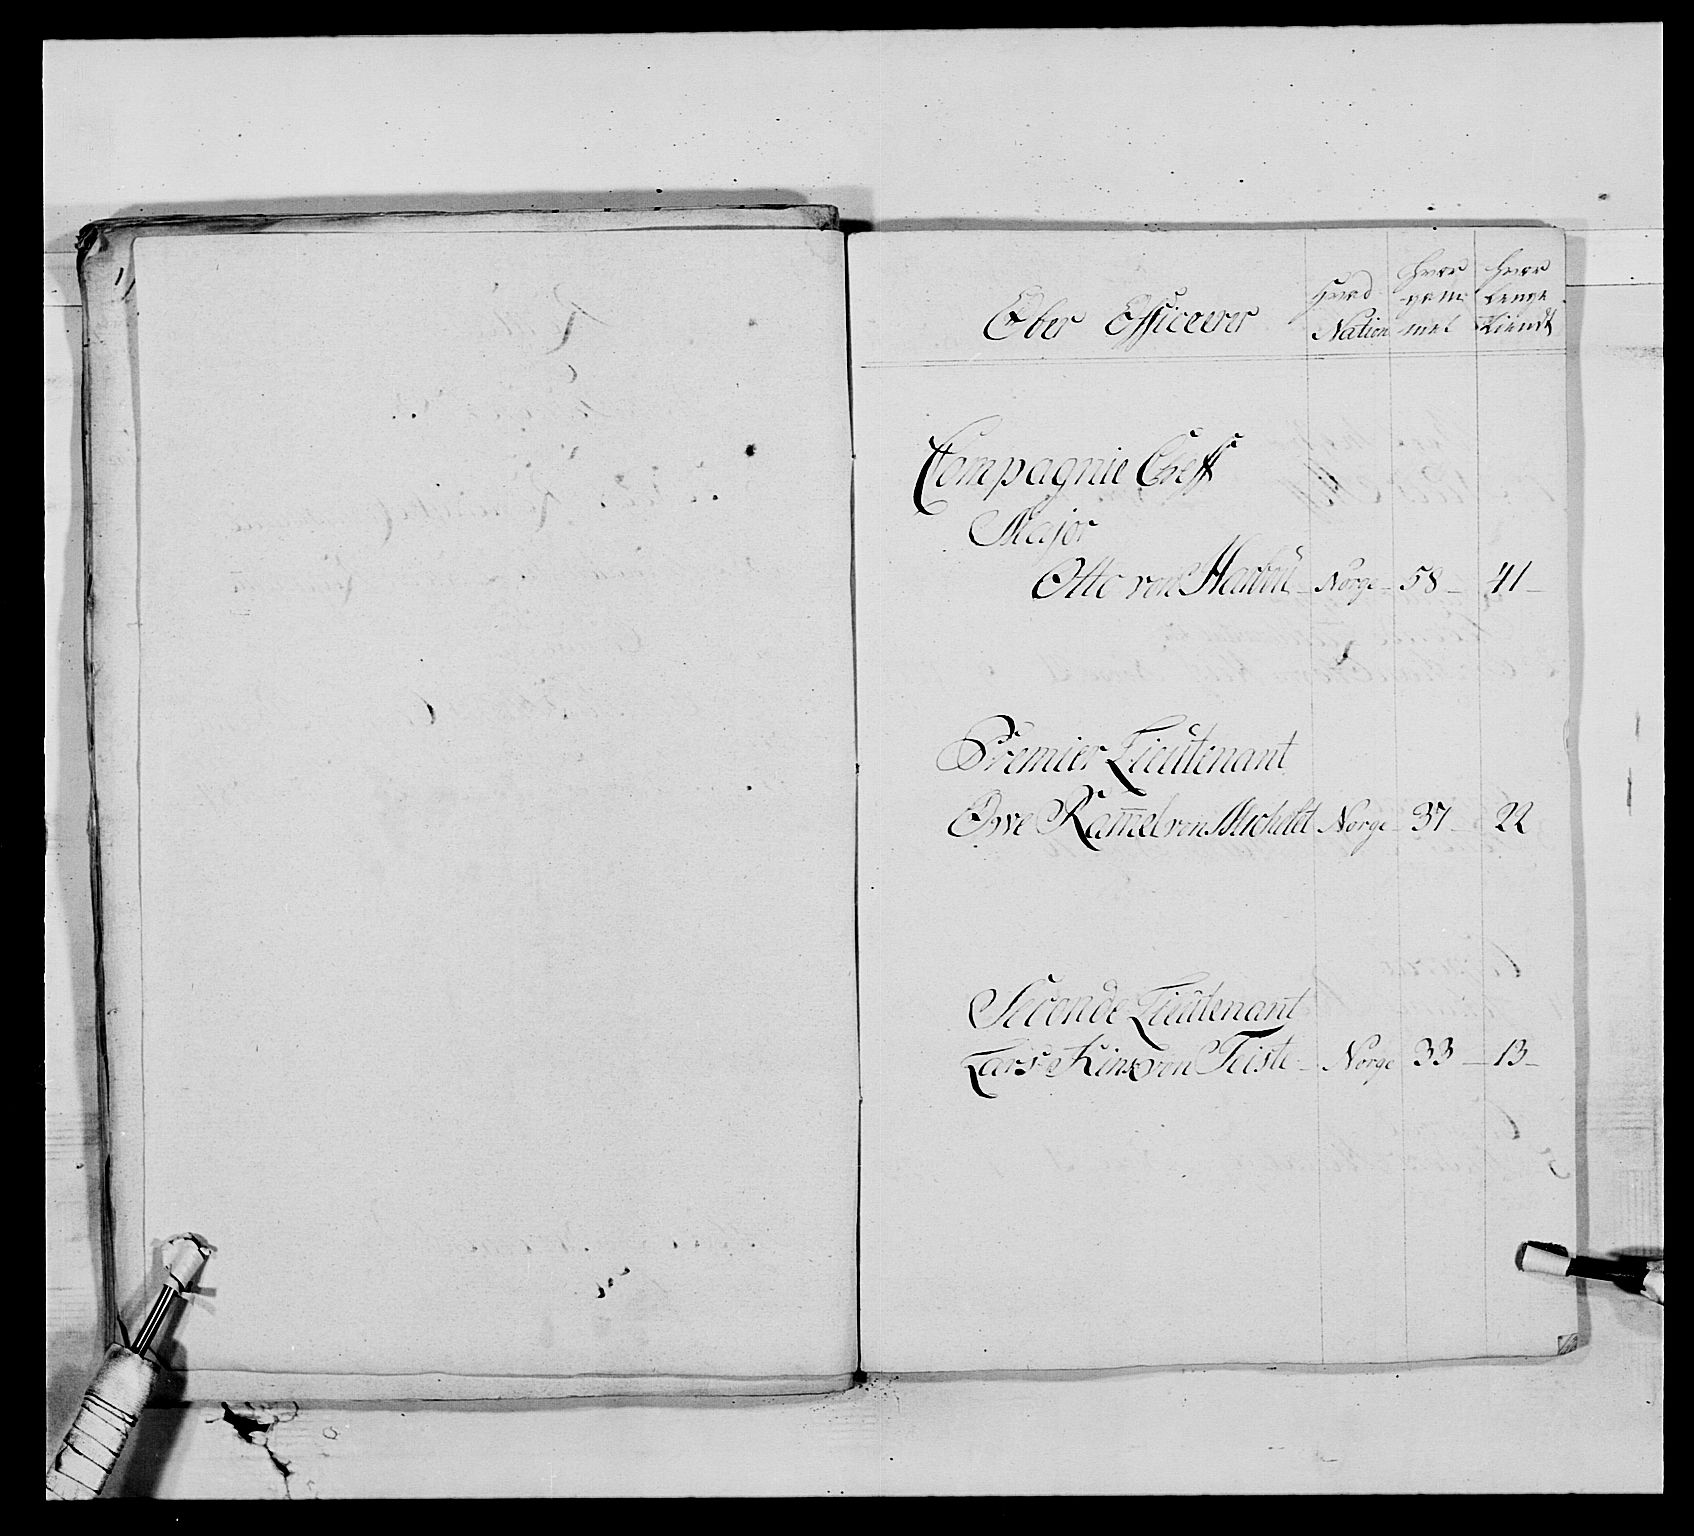 Ober Officerer
Hvad Nation
Hvor gam- mel
Hvor lenge tiendt
Compagnie Cheff
Major
Otto von - Norge - 58 - 41 -
Premier Lieutenant
Owe Ramel von Michelet Norge - 37 - 22
Seconde Lieutenant
Lars von Teiste - Norge 33 - 13 -